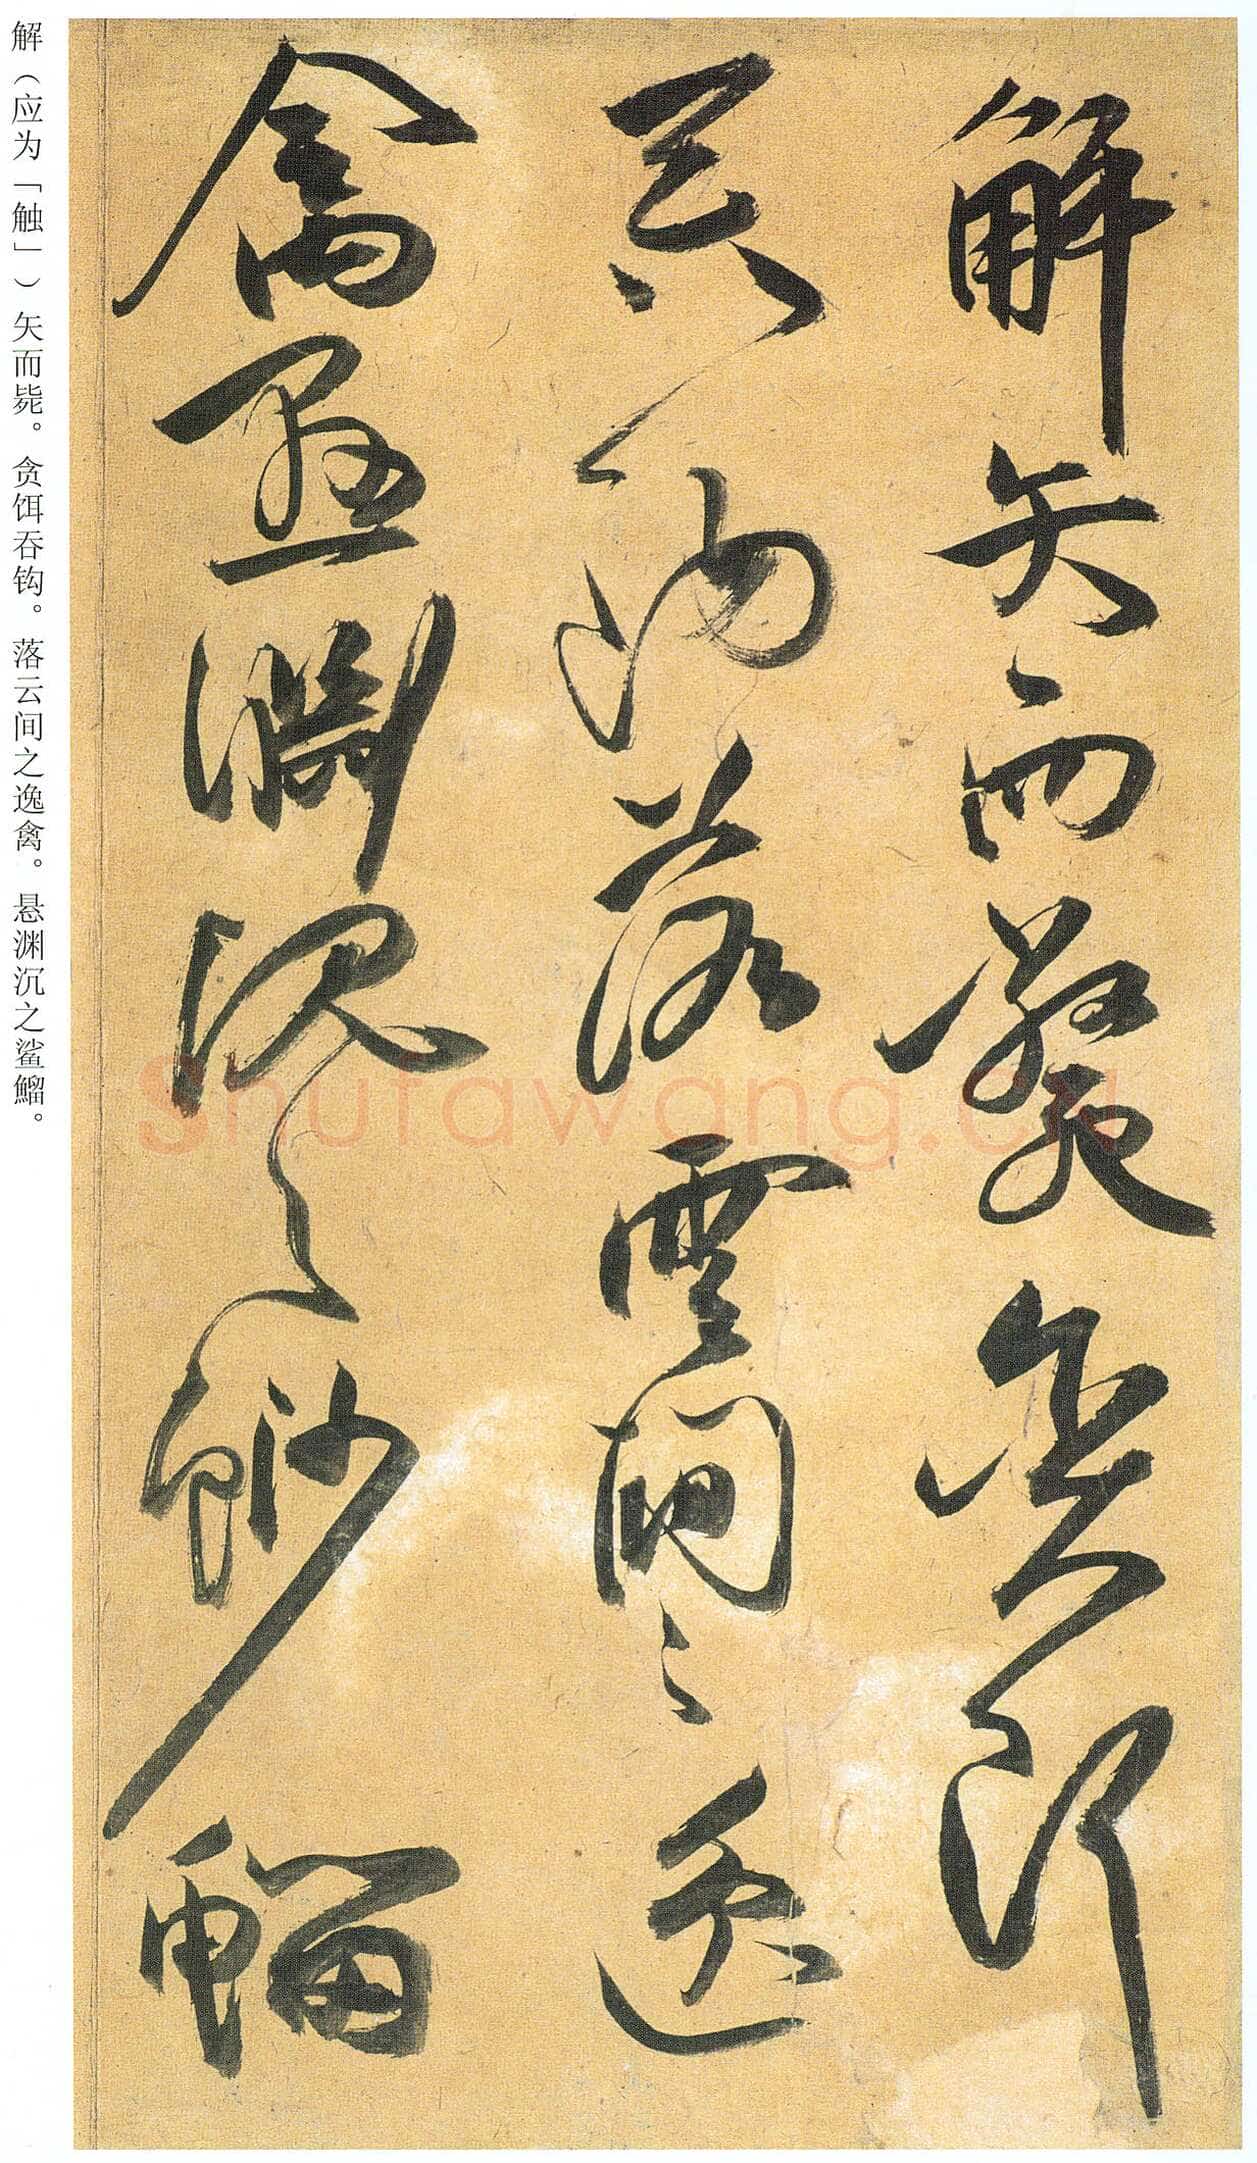 解矢而斃貪餌
吞鉤落雲間之逸
禽懸淵沉之鯊鰡
解（应为「触」）矢而毙。贪饵吞钩。落云间之逸禽。悬渊沉之鲨鰡。
shufawang.cn